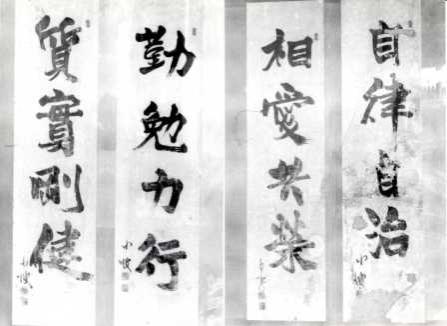 自律自治
相愛共榮
勤勉力行
質實剛健